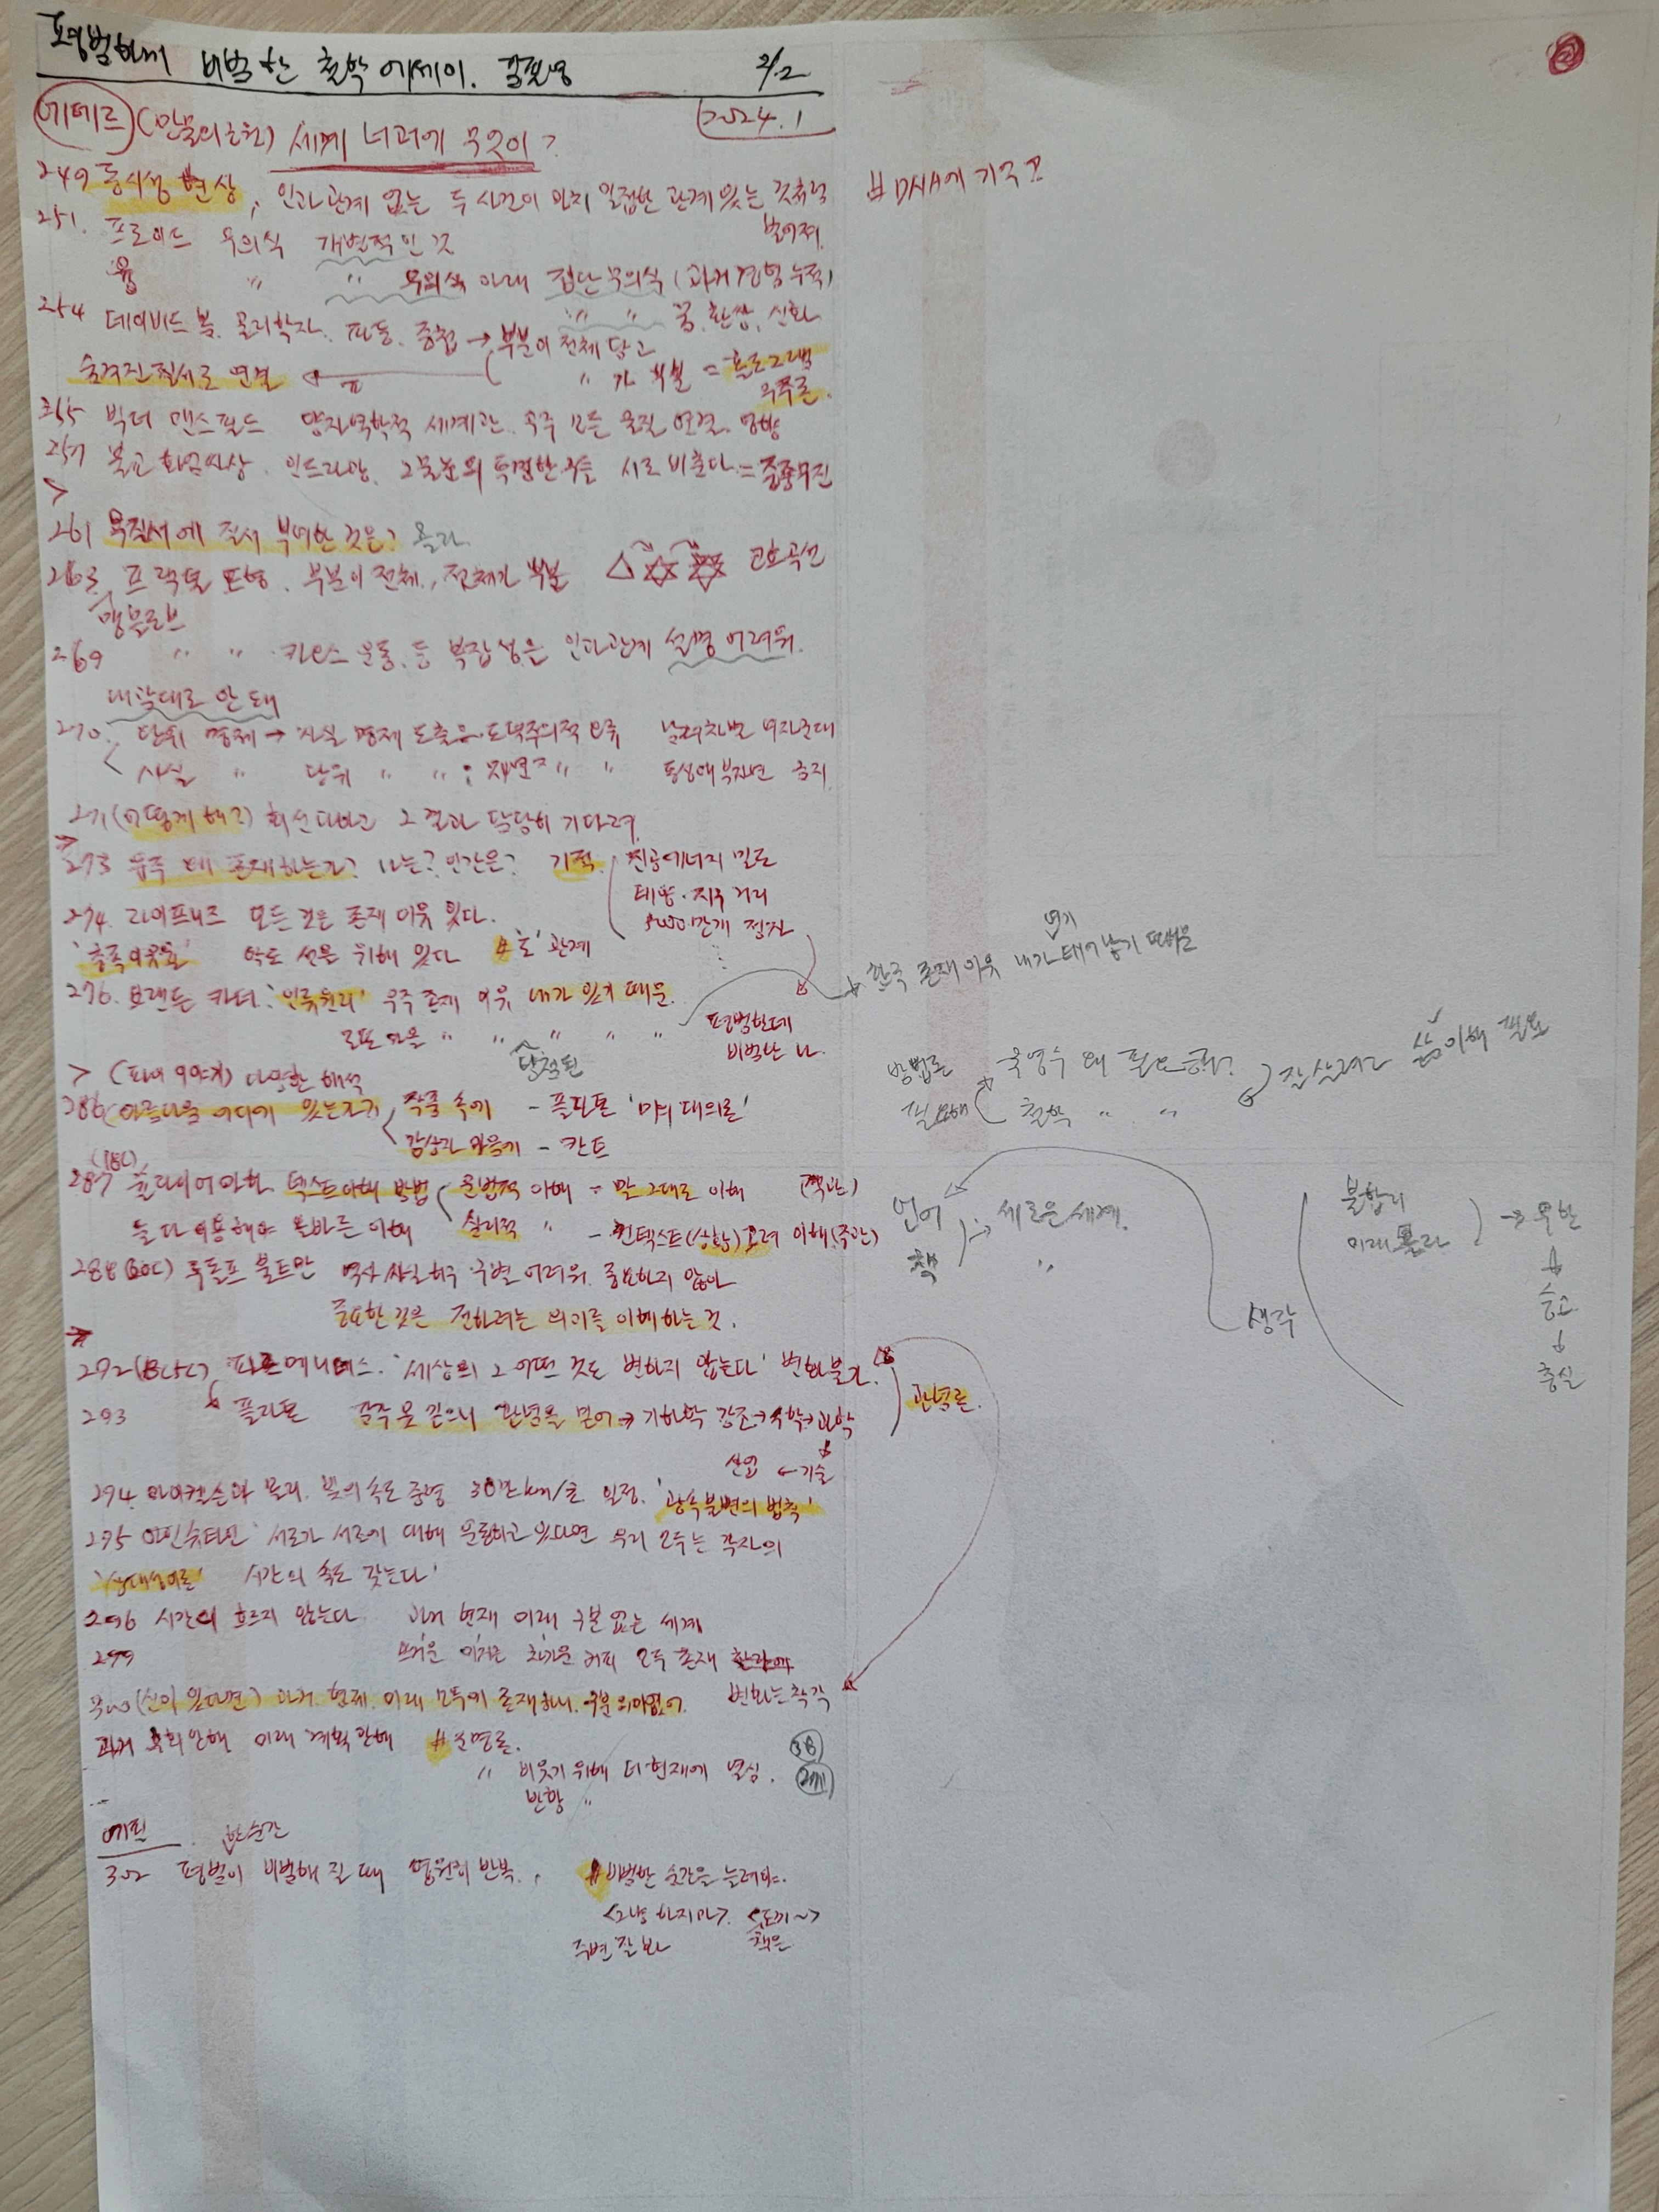 평범하게 비범한 철학 에세이. 김필영 2/2
에테르 (만물의 근원) 세계 너머에 무엇이? 2024.1
249 동시성 현상, 인과관계 없는 두 사건이 마치 밀접한 관계 있는 것처럼 보여져. # DNA에 기록?
251. 프로이드 무의식 개별적인 것
융 〃 〃 무의식 아래 집단무의식 (과거경험 누적)
〃 〃 꿈, 환상, 신화
254 데이비드 봄. 물리학자. 파동. 중첩 → 부분이 전체 담고
숨겨진 질서로 연결 ← 〃 가 부분 = 홀로그램 우주론.
빅터 맨스필드 양자역학적 세계관. 우주 모든 물질 연결. 영향
257 불교 화엄사상. 인드라망. 그물눈의 투명한 구슬 서로 비춘다 = 중중무진
>
261 무질서에 질서 부여한 것은? 몰라.
263. 프랙탈 도형. 부분이 전체, 전체가 부분 코흐곡선
망델브로
269 〃 〃 카오스 운동. 등 복잡성은 인과관계 설명 어려워.
내 맘대로 안 돼
270. 당위 명제 → 사실 명제 도출은 도덕주의적 오류 남녀차별 여자군대
사실 〃 당위 〃 〃 : 자연주 〃 〃 동성애 부자연 금지
271 (어떻게 해?) 최선 다하고 그 결과 담담히 기다려.
273 우주 왜 존재하는가? 나는? 인간은? 기적. 진공에너지 밀도
태양·지구 거리
274. 라이프니츠 모든 것은 존재 이유 있다. 정자
'충족이유율' 악도 선을 위해 있다 #'호' 관계
276. 브랜든 카터. '인류원리' 우주 존재 이유 내가 있기 때문. → 한국 존재 이유 내가 여기 태어났기 때문
로또 당첨된 〃 〃 〃 〃 〃
평범한데 비범한 나.
> (파이 이야기) 다양한 해석
방법론 국영수 왜 필요한가?
필요해 철학 〃 〃 잘 살려면 삶 이해 필요
286 (아름다움 어디에 있는가) 작품 속에 - 플라톤 '미의 대의론'
감상자 마음에 - 칸트
287 (18C) 슐라이어마허. 텍스트이해 방법 문법적 이해 = 말 그대로 이해 (객관)
둘 다 이용해야 올바른 이해 심리적 〃 - 컨텍스트(상황)고려 이해(주관)
언어 → 세로운 세계.
책 〃
불합리
미래 몰라 → 무한
↓
숭고
↓
충실
생각
288 (20C) 루돌프 불트만 역사 사실 허구 구별 어려워. 중요하지 않아
중요한 것은 전하려는 의미를 이해하는 것.
292 (BC5C) 파르메니데스. '세상의 그 어떤 것도 변하지 않는다' 변화불가. 관념론.
293 플라톤 관념을 믿어 → 기하학 강조 → 수학 → 과학
산업 ← 기술
294. 마이컬슨과 몰리. 빛의 속도 증명 30만km/초 일정. '광속불변의 법칙'
295 아인슈타인 '서로가 서로에 대해 운동하고 있다면 우리 모두는 각자의
'상대성이론' 시간의 속도 갖는다'
296 시간의 흐르지 않는다 과거 현재 미래 구분 없는 세계
299 뜨거운 미지근 차가운 커피 모두 존재
300 (신이 있다면) 과거. 현재. 미래 모두에 존재하니. 구분 의미없어. 변화는 착각
과거 후회 안해 미래 계획 안해 #운명론.
〃 비웃기 위해 더 현재에 열심.
반항 〃
에필 한순간
302 평범이 비범해 질 때 영원히 반복. #비범한 순간을 늘려라.
<그냥 하지마>. <도끼~>
주변 잘 봐 책은